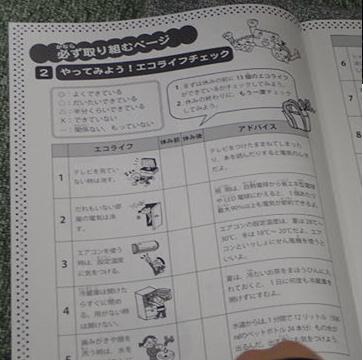 必ず取り組むページ
2 やってみよう!エコライフチェック
◎:よくできている
○:だいたいできている
△:半分くらいできている
×:できていない
−:関係ない、もっていない
1.まずは休みの前に11個のエコライフ
ができているかチェックしてみよう。
2.休みの終わりに、もう一度チェック
してみよう。
エコライフ
休み前
休み後
アドバイス
1
テレビを見てい
ない時は消す。
テレビをつけたままねてしまった
り、
2
だれもいない部
屋の電気は消
す。
3
エアコンを使う
時は、設定温度
に気をつける。
エアコンの設定温度は、夏は28℃〜
30℃、冬は18℃〜20℃だよ。エア
コンといっしょにせん風機を使うと
いいよ。
4
冷蔵庫は開けた
らすぐに閉め
る。用がない時
は開けない。
夏は、冷たいお茶をまほうびんに入
れておくと、1日に何度も冷蔵庫を
開けずにすむよ。
歯みがき中や顔
を洗う時は、水を
水道からは、1分間で12リットル
のペットボトル24本分)もの水が
6
7
8